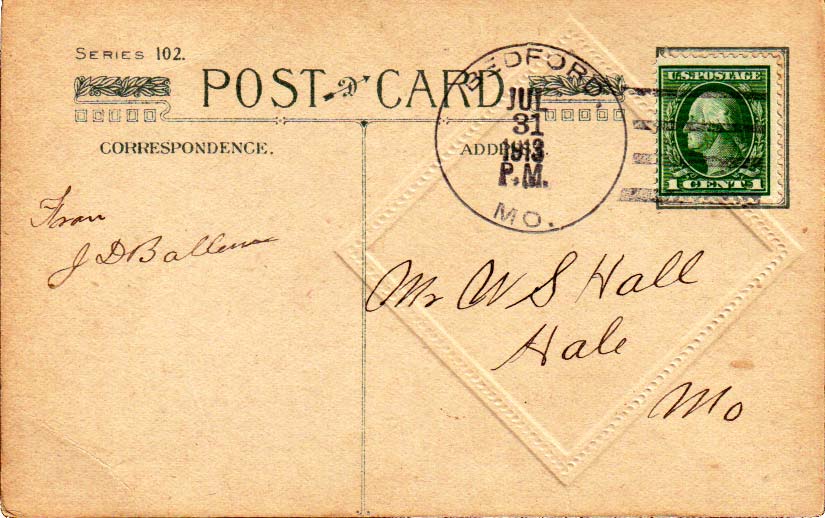 SERIES 102.
POST CARD
CORRESPONDENCE.
ADDRESS.
BEDFORD,
JUL
31
1913
P.M.
MO.
U.S. POSTAGE
1 CENT 1
From
J D
Mr W S Hall
Hale
Mo